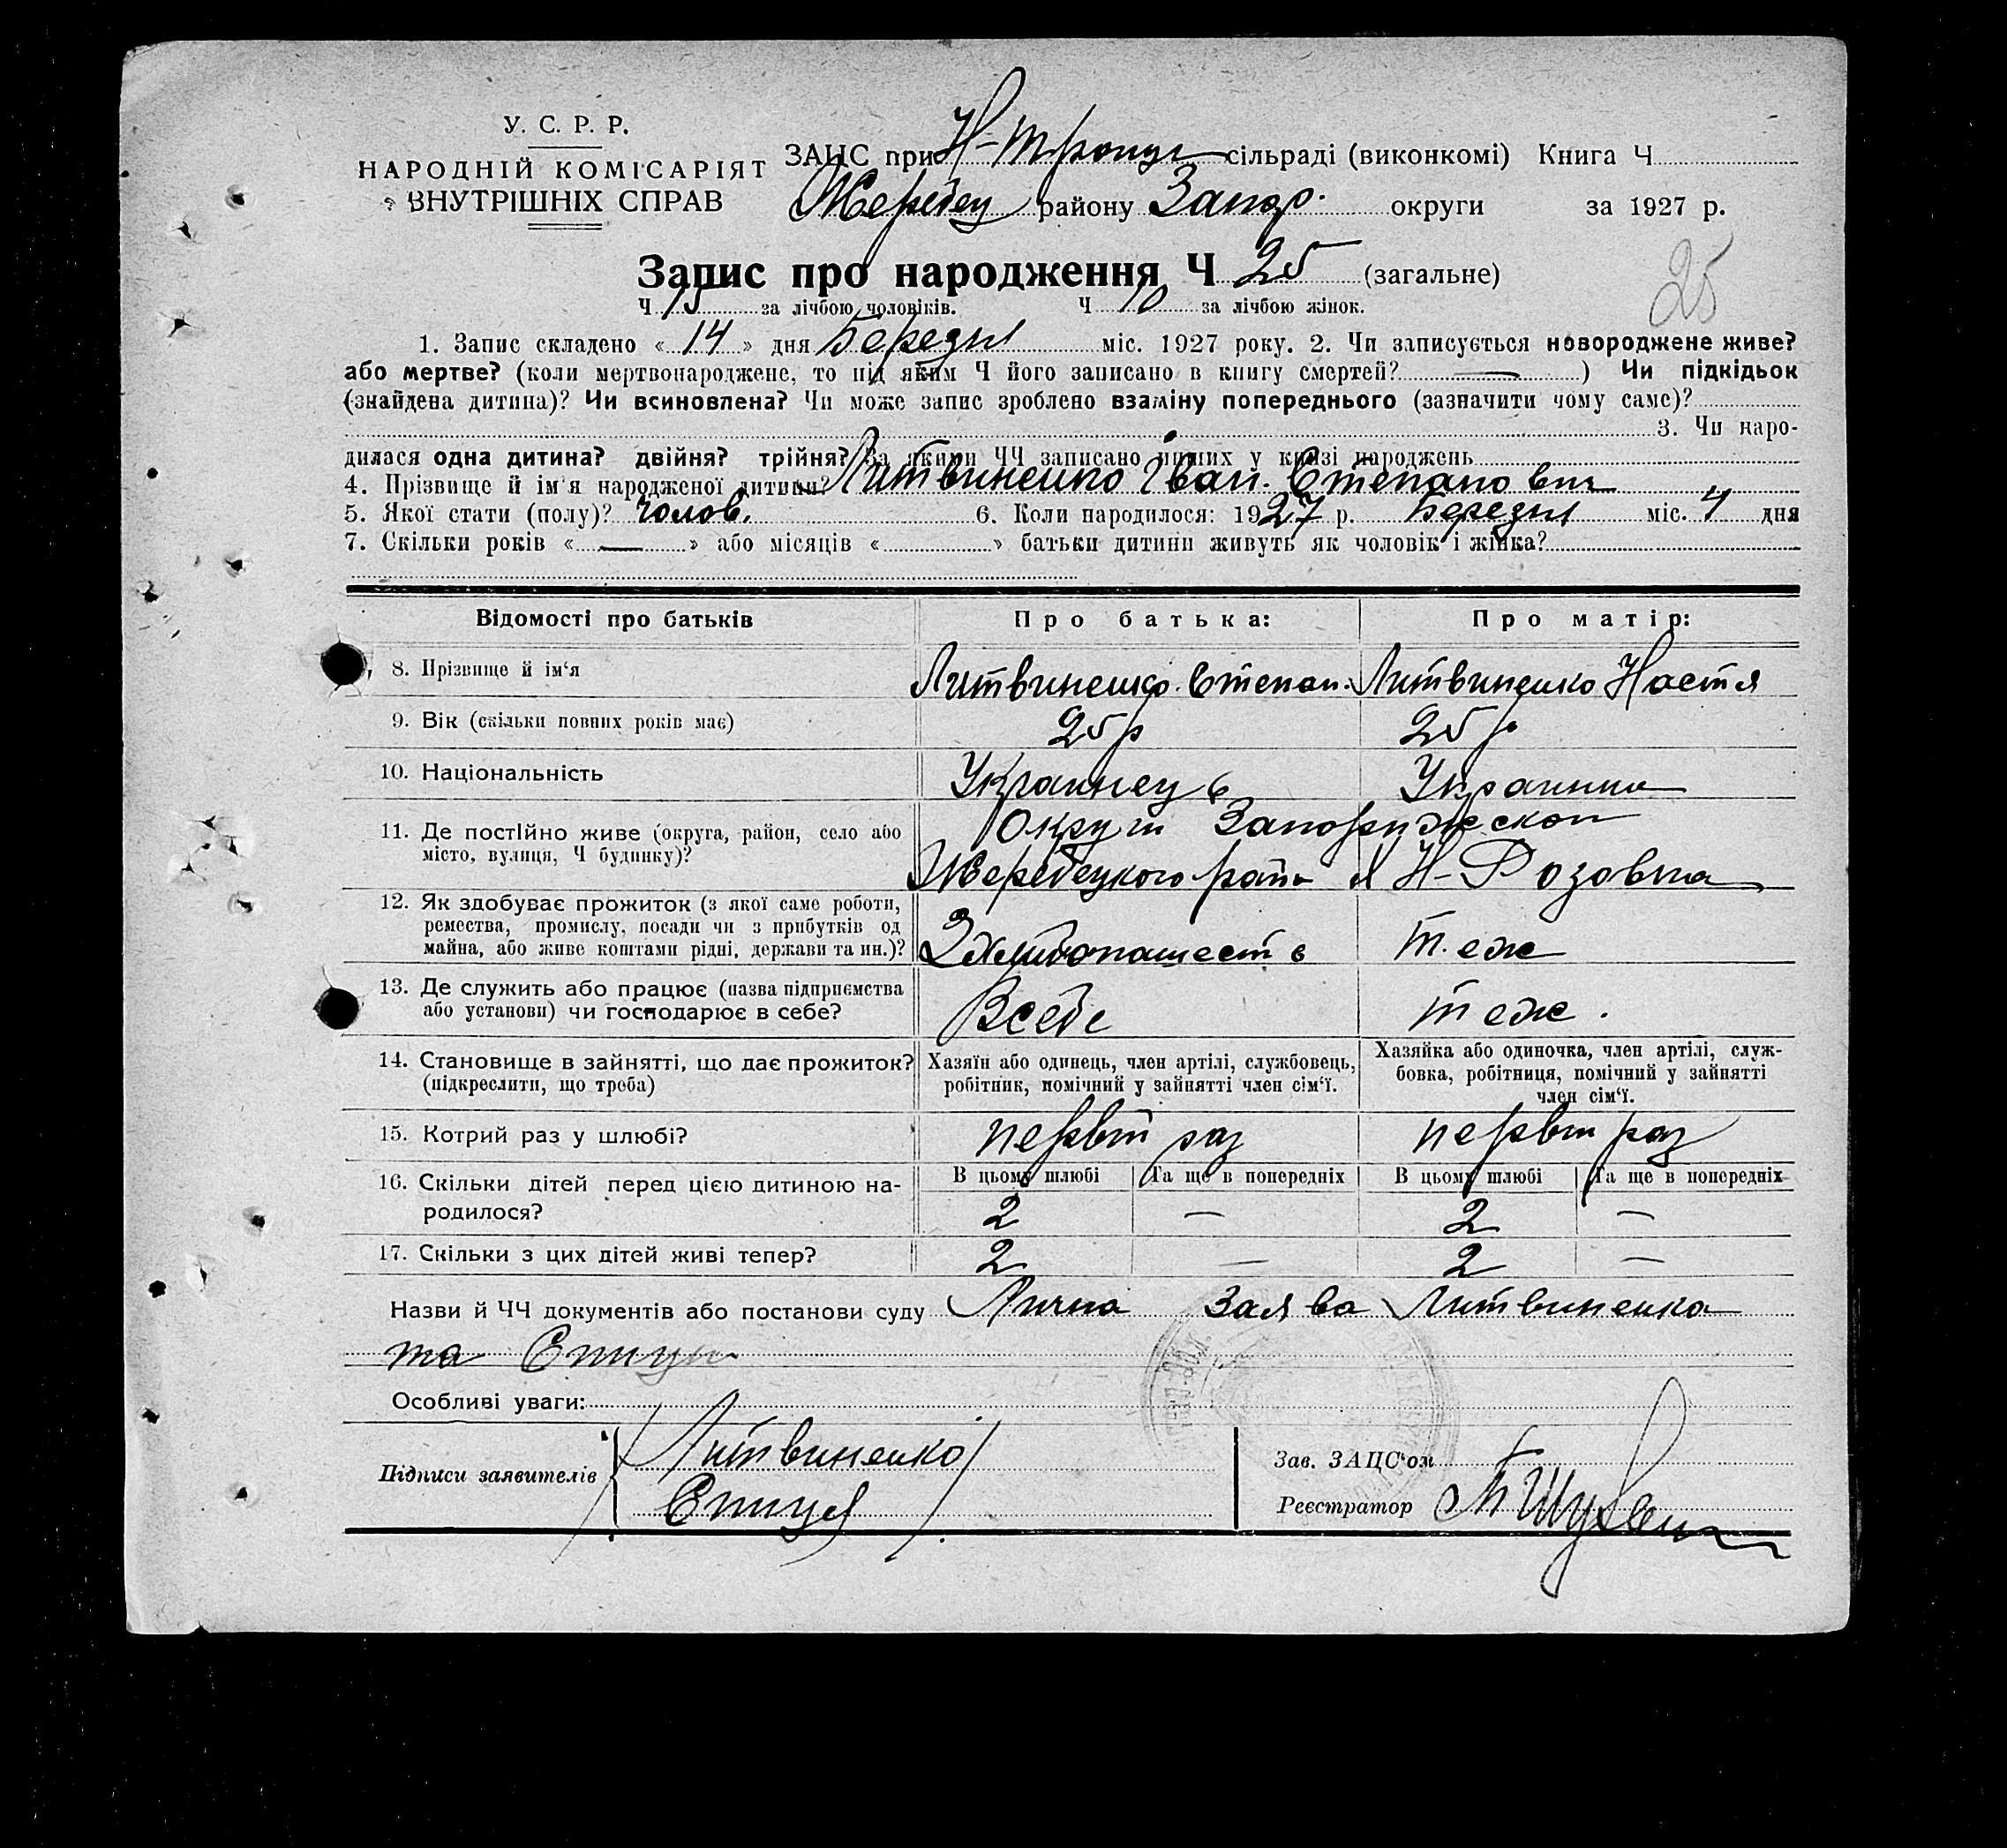 У. С. Р. Р.
НАРОДНІЙ КОМІСАРІЯТ
ВНУТРІШНІХ СПРАВ
ЗАЦС при Н-Троиц сільраді (виконкомі) Книга Ч
Жеребец району Запор. округи за 1927 р.
Запис про народження Ч 25 (загальне)
25
Ч 15 за лічбою чоловіків. Ч 10 за лічбою жінок.
1. Запис складено « 14 » дня Березня міс. 1927 року. 2. Чи записується новороджене живе?
або мертве? (коли мертвонароджене, то під яким Ч його записано в книгу смертей? — ) Чи підкідьок
(знайдена дитина)? Чи всиновлена? Чи може запис зроблено взаміну попереднього (зазначити чому саме)?
3. Чи наро-
дилася одна дитина? двійня? трійня? За якими ЧЧ записано инших у книзі народжень
4. Прізвище й ім'я народженої дитини? Литвиненко Іван. Степанович
5. Якої стати (полу)? Чолов. 6. Коли народилося: 1927 р. Березня міс. 4 дня
7. Скільки років « — » або місяців « » батьки дитини живуть як чоловік і жінка?
Відомості про батьків Про батька: Про матір:
8. Прізвище й ім'я Литвиненко. Степан. Литвиненко Настя
9. Вік (скільки повних років має) 25 р 25 р
10. Національність Украинець Украинка
11. Де постійно живе (округа, район, село або
місто, вулиця, Ч будинку)?
Округи Запорижскои
Жеребецкого Н-Розовка
12. Як здобуває прожиток (з якої саме роботи,
ремества, промислу, посади чи з прибутків од
майна, або живе коштами рідні, держави та ин.)?
теж
13. Де служить або працює (назва підприємства
або установи) чи господарює в себе?
Всебе теж.
14. Становище в зайнятті, що дає прожиток?
(підкреслити, що треба)
Хазяїн або одинець, член артілі, службовець,
робітник, помічний у зайнятті член сім'ї.
Хазяйка або одиночка, член артілі, служ-
бовка, робітниця, помічний у зайнятті
член сім'ї.
15. Котрий раз у шлюбі? первий раз первий раз
16. Скільки дітей перед цією дитиною на-
родилося?
В цьому шлюбі Та ще в попередніх В цьому шлюбі Та ще в попередніх
2 — 2 —
17. Скільки з цих дітей живі тепер? 2 — 2 —
Назви й ЧЧ документів або постанови суду Лична Заява Литвиненка
та Спици
Особливі уваги:
Підписи заявителів
Литвиненко
Спиця
Зав. ЗАЦС'ом
Реєстратор